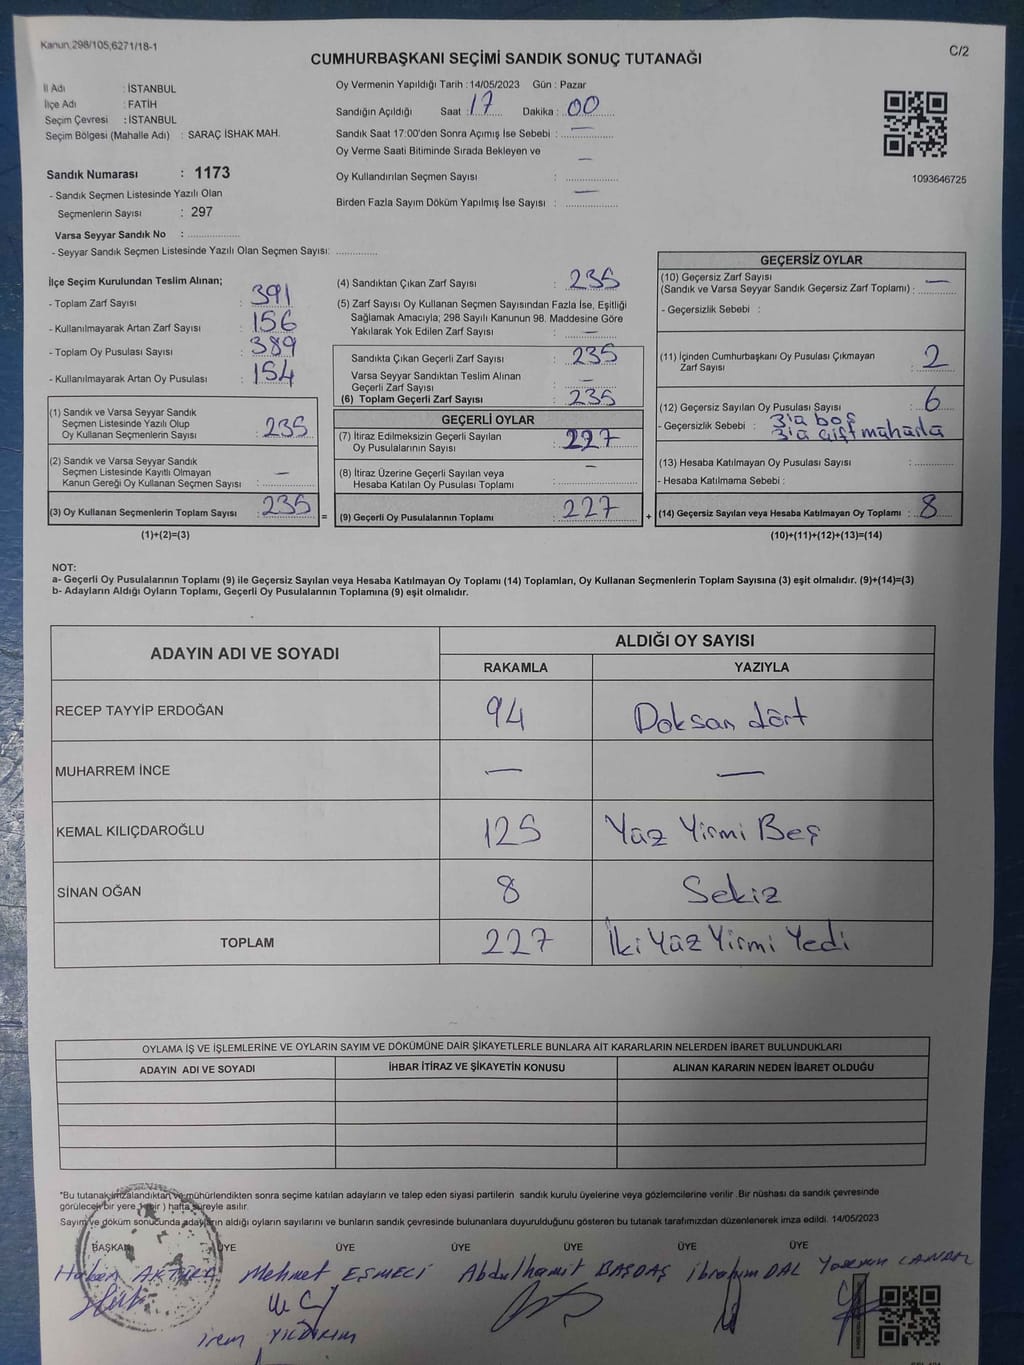 Kanun,298/105,6271/18-1
C/2
CUMHURBAŞKANI SEÇİMİ SANDIK SONUÇ TUTANAĞI
İl Adı : İSTANBUL
İlçe Adı : FATİH
Seçim Çevresi : İSTANBUL
Seçim Bölgesi (Mahalle Adı) : SARAÇ İSHAK MAH.
Oy Vermenin Yapıldığı Tarih : 14/05/2023 Gün : Pazar
Sandığın Açıldığı Saat : 17 Dakika : 00
Sandık Saat 17:00'den Sonra Açımış İse Sebebi : —
Oy Verme Saati Bitiminde Sırada Bekleyen ve
Oy Kullandırılan Seçmen Sayısı : —
Birden Fazla Sayım Döküm Yapılmış İse Sayısı : —
1093646725
Sandık Numarası : 1173
- Sandık Seçmen Listesinde Yazılı Olan
Seçmenlerin Sayısı : 297
Varsa Seyyar Sandık No : ..................
- Seyyar Sandık Seçmen Listesinde Yazılı Olan Seçmen Sayısı: ..............
İlçe Seçim Kurulundan Teslim Alınan;
- Toplam Zarf Sayısı : 391
- Kullanılmayarak Artan Zarf Sayısı : 156
- Toplam Oy Pusulası Sayısı : 389
- Kullanılmayarak Artan Oy Pusulası : 154
(1) Sandık ve Varsa Seyyar Sandık
Seçmen Listesinde Yazılı Olup
Oy Kullanan Seçmenlerin Sayısı : 235
(2) Sandık ve Varsa Seyyar Sandık
Seçmen Listesinde Kayıtlı Olmayan
Kanun Gereği Oy Kullanan Seçmen Sayısı : —
(3) Oy Kullanan Seçmenlerin Toplam Sayısı : 235
(1)+(2)=(3)
=
(4) Sandıktan Çıkan Zarf Sayısı : 235
(5) Zarf Sayısı Oy Kullanan Seçmen Sayısından Fazla İse, Eşitliği
Sağlamak Amacıyla; 298 Sayılı Kanunun 98. Maddesine Göre
Yakılarak Yok Edilen Zarf Sayısı : —
Sandıkta Çıkan Geçerli Zarf Sayısı : 235
Varsa Seyyar Sandıktan Teslim Alınan
Geçerli Zarf Sayısı : —
(6) Toplam Geçerli Zarf Sayısı : 235
GEÇERLİ OYLAR
(7) İtiraz Edilmeksizin Geçerli Sayılan
Oy Pusulalarının Sayısı : 227
(8) İtiraz Üzerine Geçerli Sayılan veya
Hesaba Katılan Oy Pusulası Toplamı : —
(9) Geçerli Oy Pusulalarının Toplamı : 227
+
GEÇERSİZ OYLAR
(10) Geçersiz Zarf Sayısı
(Sandık ve Varsa Seyyar Sandık Geçersiz Zarf Toplamı) : —
- Geçersizlik Sebebi :
(11) İçinden Cumhurbaşkanı Oy Pusulası Çıkmayan
Zarf Sayısı : 2
(12) Geçersiz Sayılan Oy Pusulası Sayısı : 6
- Geçersizlik Sebebi : 3'ü boş
3'ü çift mühürlü
(13) Hesaba Katılmayan Oy Pusulası Sayısı :
- Hesaba Katılmama Sebebi :
(14) Geçersiz Sayılan veya Hesaba Katılmayan Oy Toplamı : 8
(10)+(11)+(12)+(13)=(14)
NOT:
a- Geçerli Oy Pusulalarının Toplamı (9) ile Geçersiz Sayılan veya Hesaba Katılmayan Oy Toplamı (14) Toplamları, Oy Kullanan Seçmenlerin Toplam Sayısına (3) eşit olmalıdır. (9)+(14)=(3)
b- Adayların Aldığı Oyların Toplamı, Geçerli Oy Pusulalarının Toplamına (9) eşit olmalıdır.
ADAYIN ADI VE SOYADI
ALDIĞI OY SAYISI
RAKAMLA YAZIYLA
RECEP TAYYİP ERDOĞAN 94 Doksan dört
MUHARREM İNCE — —
KEMAL KILIÇDAROĞLU 125 Yüz Yirmi Beş
SİNAN OĞAN 8 Sekiz
TOPLAM 227 İki Yüz Yirmi Yedi
OYLAMA İŞ VE İŞLEMLERİNE VE OYLARIN SAYIM VE DÖKÜMÜNE DAİR ŞİKAYETLERLE BUNLARA AİT KARARLARIN NELERDEN İBARET BULUNDUKLARI
ADAYIN ADI VE SOYADI İHBAR İTİRAZ VE ŞİKAYETİN KONUSU ALINAN KARARIN NEDEN İBARET OLDUĞU
*Bu tutanak imzalandıktan ve mühürlendikten sonra seçime katılan adayların ve talep eden siyasi partilerin sandık kurulu üyelerine veya gözlemcilerine verilir .Bir nüshası da sandık çevresinde
görülecek bir yere 1 (bir ) hafta süreyle asılır.
Sayım ve döküm sonucunda adayların aldığı oyların sayılarını ve bunların sandık çevresinde bulunanlara duyurulduğunu gösteren bu tutanak tarafımızdan düzenlenerek imza edildi. 14/05/2023
BAŞKAN ÜYE ÜYE ÜYE ÜYE ÜYE ÜYE
Mehmet EŞMECİ Abdulhamit BAŞDAŞ İbrahim DAL
İrem YILDIRIM